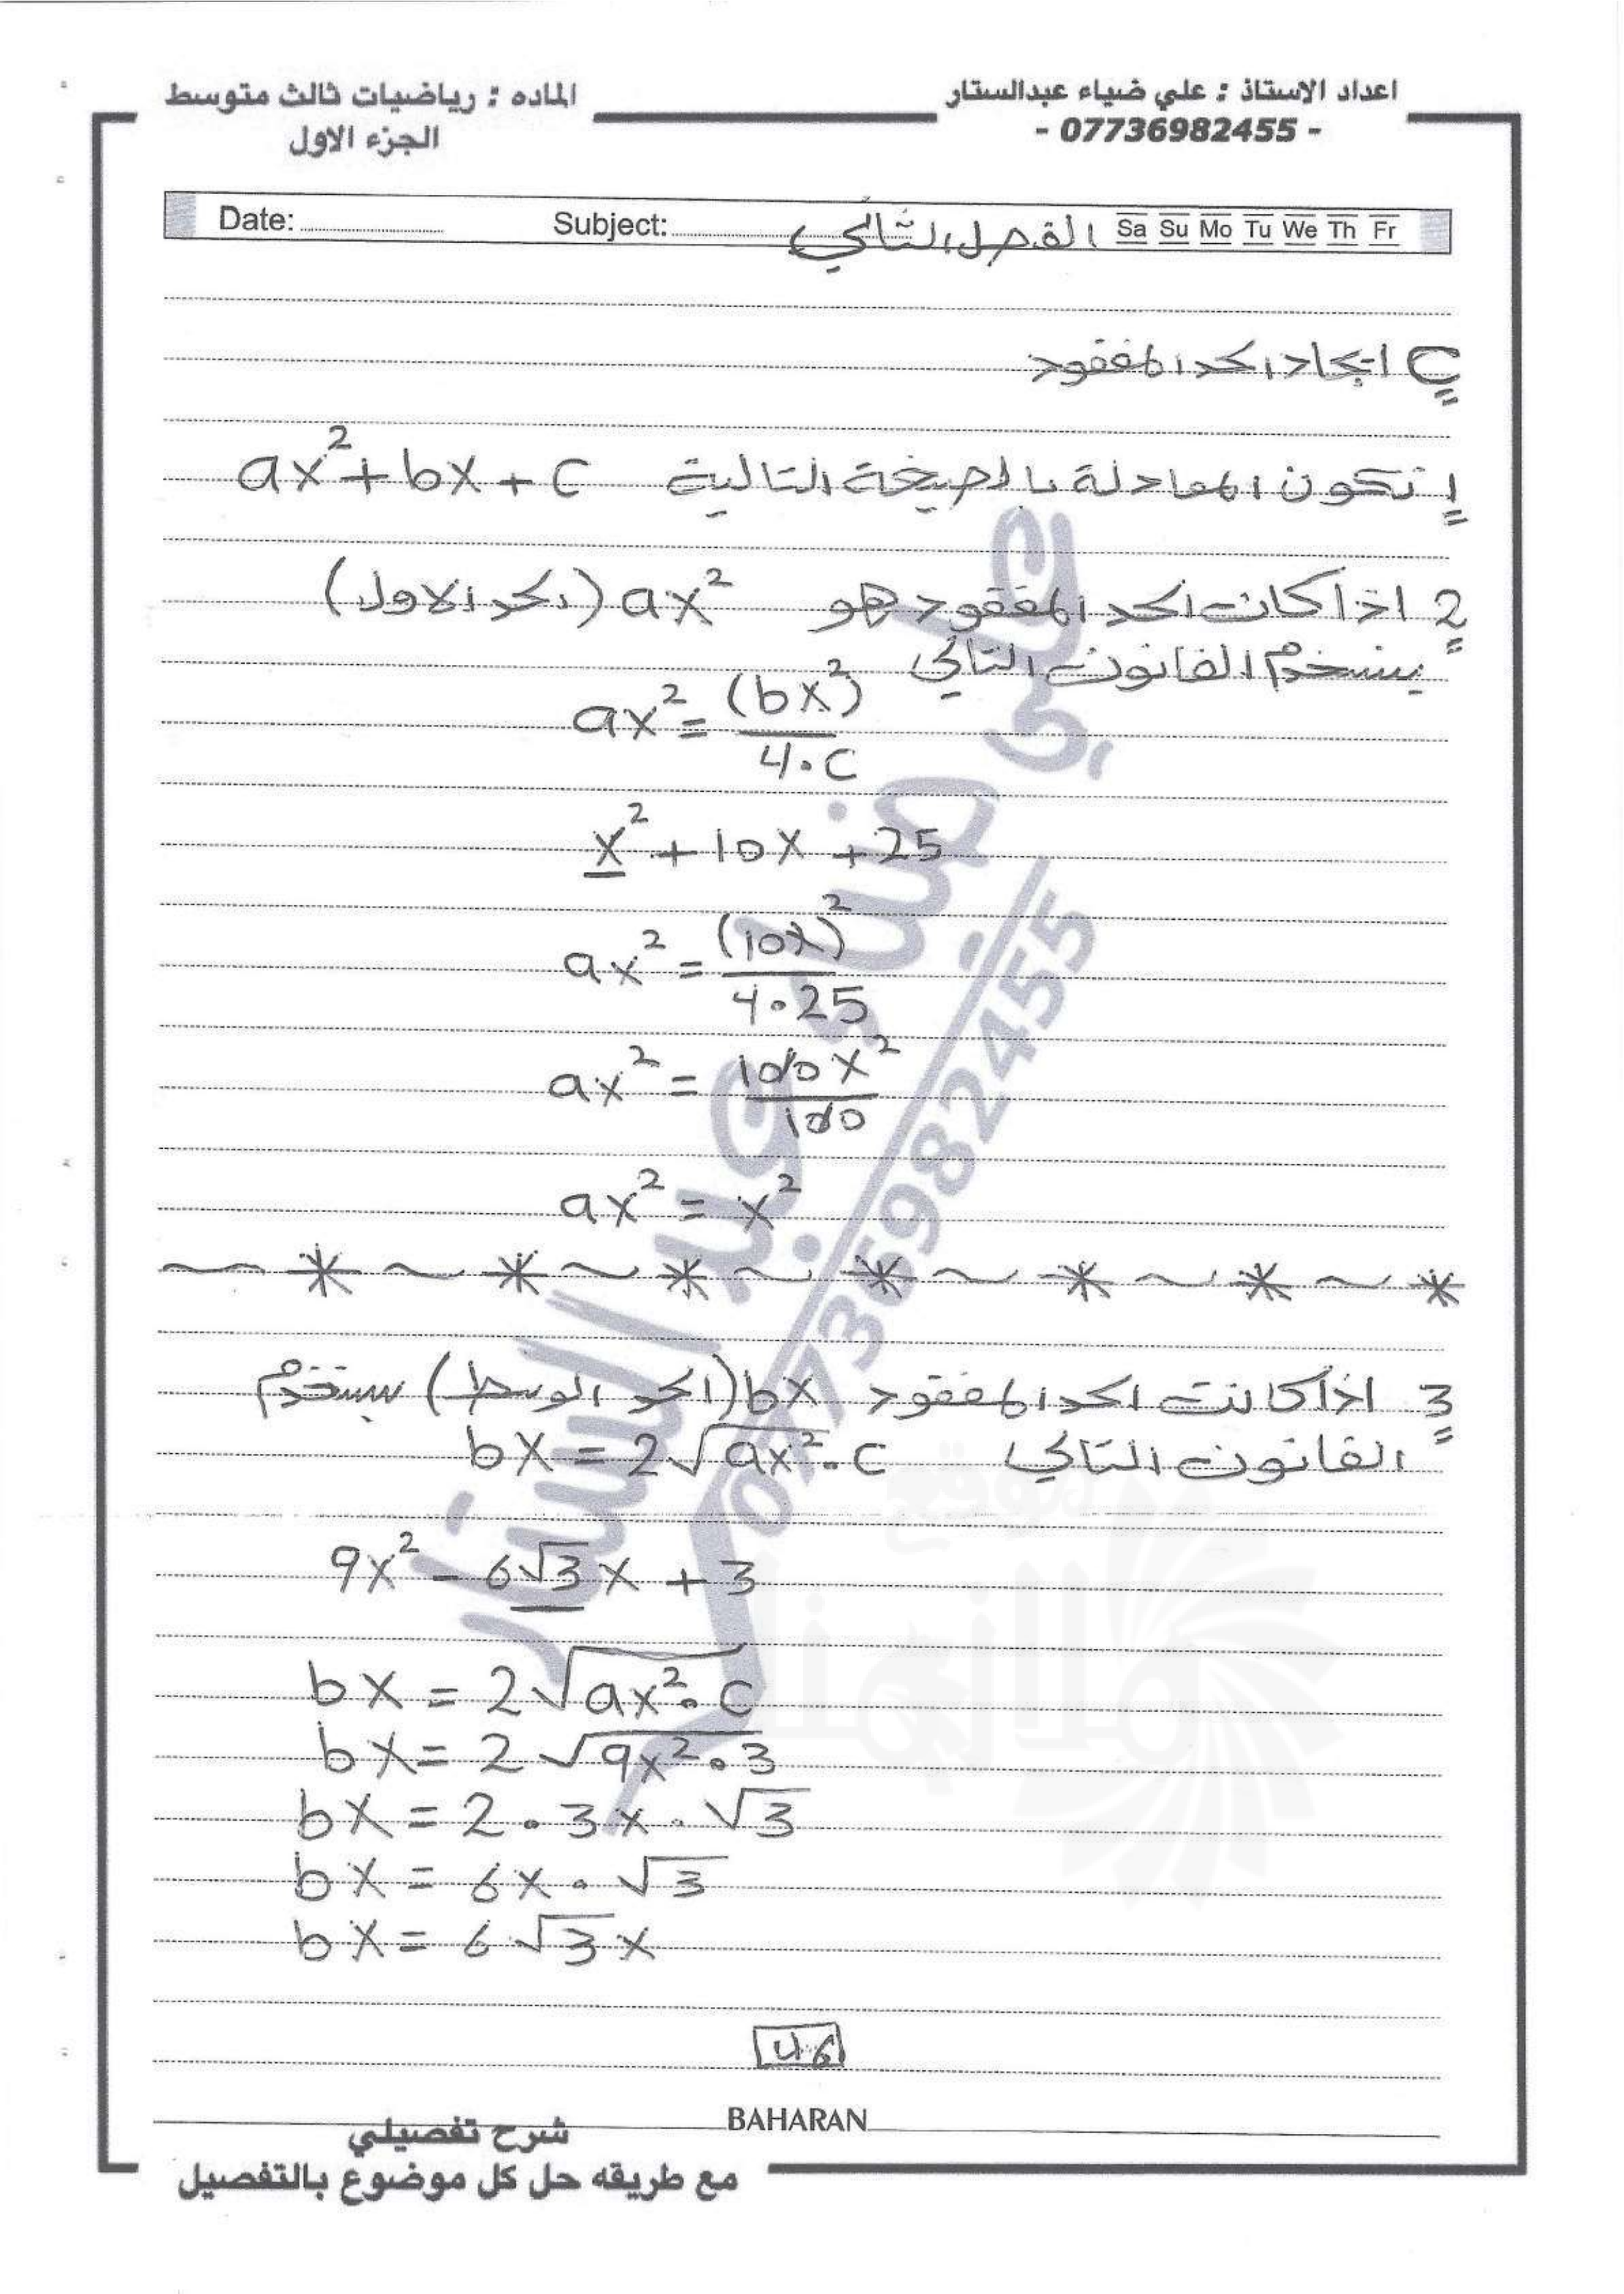 اعداد الاستاذ : علي ضياء عبدالستار
- 07736982455 -
الماده : رياضيات ثالث متوسط
الجزء الاول
Date: Subject: الفصل الثاني Sa Su Mo Tu We Th Fr
C ايجاد الحد المفقود
1 تكون المعادلة بالصيغة التالية ax²+bx+c
2 اذا كانت الحد المفقود هو ax² (الحد الاول)
يستخدم القانون التالي
ax² = (bx)² / 4·c
x² + 10x + 25
ax² = (10x)² / 4·25
ax² = 100x² / 100
ax² = x²
3 اذا كانت الحد المفقود bx (الحد الوسط) يستخدم
القانون التالي bx = 2√(ax²·c)
9x² - 6√3x + 3
bx = 2√(ax²·c)
bx = 2√(9x²·3)
bx = 2·3x·√3
bx = 6x·√3
bx = 6√3x
46
BAHARAN
شرح تفصيلي
مع طريقه حل كل موضوع بالتفصيل
علي ضياء عبد الستار
07736982455
موقع